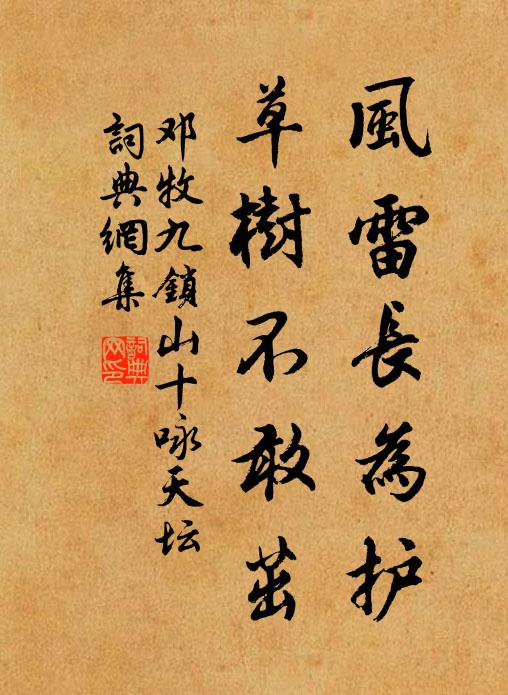 風雷長為护
草樹不敢茁
邓牧九鎖山十咏天坛
詞典網集
詞典网印